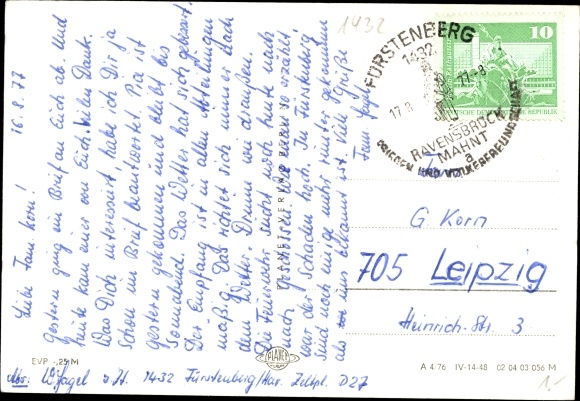 16.8.77
Liebe Fam. Korn!
Gestern ging ein Brief an Euch ab. Und
heute kam einer von Euch. Vielen Dank.
Was Dich interessiert, habe ich Dir ja
schon im Brief beantwortet. Pia ist
gestern gekommen und bleibt bis
Sonnabend. Das Wetter hat sich gebessert.
Der Empfang ist in allen Abteilungen
mäßig. Das richtet sich immer nach
dem Wetter. Drum wo draußen.
Die Feuerwehr sucht noch heute
nach Leichen. Wie man so erzählt,
war der Schaden hoch. In Fürstenberg
sind noch einige mehr runter gekommen
als uns bekannt ist. Viele Grüße
Fam. Jagel
1432
FÜRSTENBERG
1432
17.-8.77-8
RAVENSBRÜCK
MAHNT
a
FRIEDEN UND VÖLKERBEFREIUNGSHAFT
10
DEUTSCHE DEMOKRATISCHE REPUBLIK
Fam.
G. Korn
705 Leipzig
Heinrich-Str. 3
EVP -,25 M
PLANET
Abs: W. Jagel z. Zt. 1432 Fürstenberg/Hav. Zeltpl. D27
A 4/76 IV-14-48 02 04 03 056 M
1,-